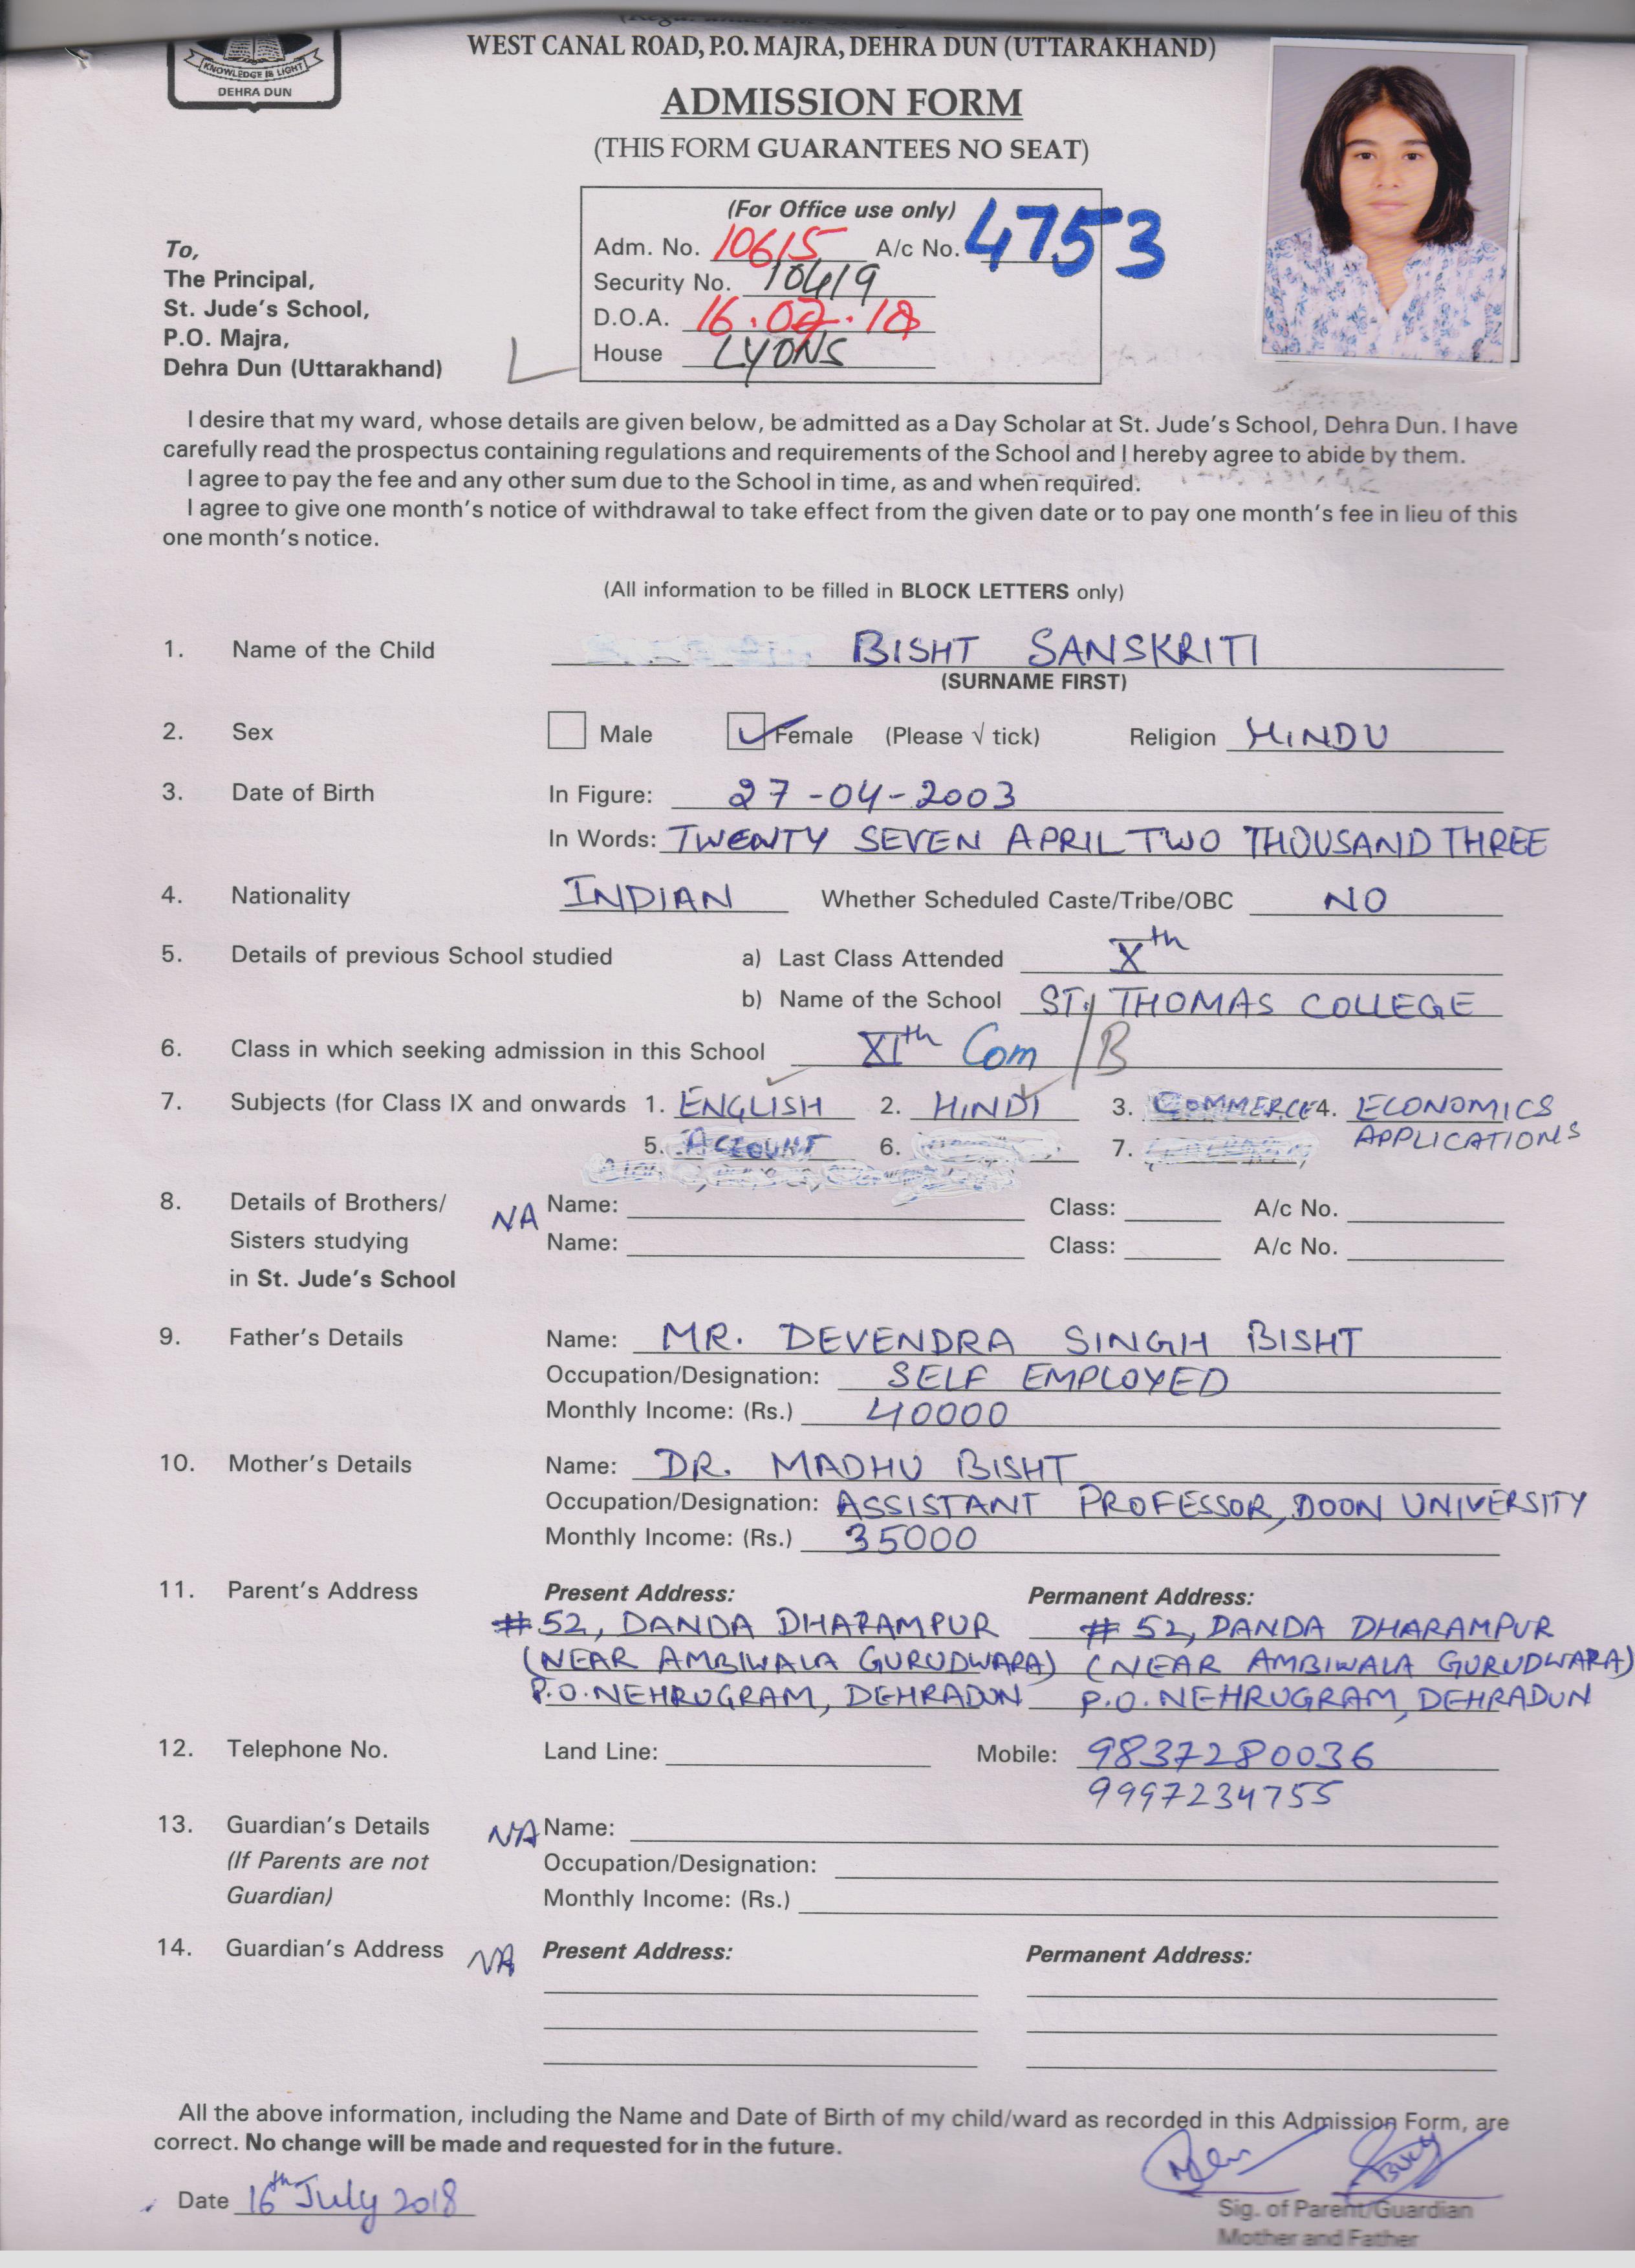 KNOWLEDGE IS LIGHT
DEHRA DUN
WEST CANAL ROAD, P.O. MAJRA, DEHRA DUN (UTTARAKHAND)
ADMISSION FORM
(THIS FORM GUARANTEES NO SEAT)
(For Office use only)
Adm. No. 10615 A/c No. 4753
Security No. 10419
D.O.A. 16.07.18
House LYONS
To,
The Principal,
St. Jude's School,
P.O. Majra,
Dehra Dun (Uttarakhand)
I desire that my ward, whose details are given below, be admitted as a Day Scholar at St. Jude's School, Dehra Dun. I have
carefully read the prospectus containing regulations and requirements of the School and I hereby agree to abide by them.
I agree to pay the fee and any other sum due to the School in time, as and when required.
I agree to give one month's notice of withdrawal to take effect from the given date or to pay one month's fee in lieu of this
one month's notice.
(All information to be filled in BLOCK LETTERS only)
1. Name of the Child BISHT SANSKRITI
(SURNAME FIRST)
2. Sex Male Female (Please √ tick) Religion HINDU
3. Date of Birth In Figure: 27-04-2003
In Words: TWENTY SEVEN APRIL TWO THOUSAND THREE
4. Nationality INDIAN Whether Scheduled Caste/Tribe/OBC NO
5. Details of previous School studied a) Last Class Attended Xth
b) Name of the School ST. THOMAS COLLEGE
6. Class in which seeking admission in this School XIth Com / B
7. Subjects (for Class IX and onwards 1. ENGLISH 2. HINDI 3. COMMERCE 4. ECONOMICS
5. ACCOUNT 6. 7. APPLICATIONS
8. Details of Brothers/ NA Name: Class: A/c No.
Sisters studying Name: Class: A/c No.
in St. Jude's School
9. Father's Details Name: MR. DEVENDRA SINGH BISHT
Occupation/Designation: SELF EMPLOYED
Monthly Income: (Rs.) 40000
10. Mother's Details Name: DR. MADHU BISHT
Occupation/Designation: ASSISTANT PROFESSOR, DOON UNIVERSITY
Monthly Income: (Rs.) 35000
11. Parent's Address Present Address: Permanent Address:
#52, DANDA DHARAMPUR # 52, DANDA DHARAMPUR
(NEAR AMBIWALA GURUDWARA) (NEAR AMBIWALA GURUDWARA)
P.O. NEHRUGRAM, DEHRADUN P.O. NEHRUGRAM, DEHRADUN
12. Telephone No. Land Line: Mobile: 9837280036
9997234755
13. Guardian's Details NA Name:
(If Parents are not Occupation/Designation:
Guardian) Monthly Income: (Rs.)
14. Guardian's Address NA Present Address: Permanent Address:
All the above information, including the Name and Date of Birth of my child/ward as recorded in this Admission Form, are
correct. No change will be made and requested for in the future.
Date 16th July 2018
Sig. of Parent/Guardian
Mother and Father